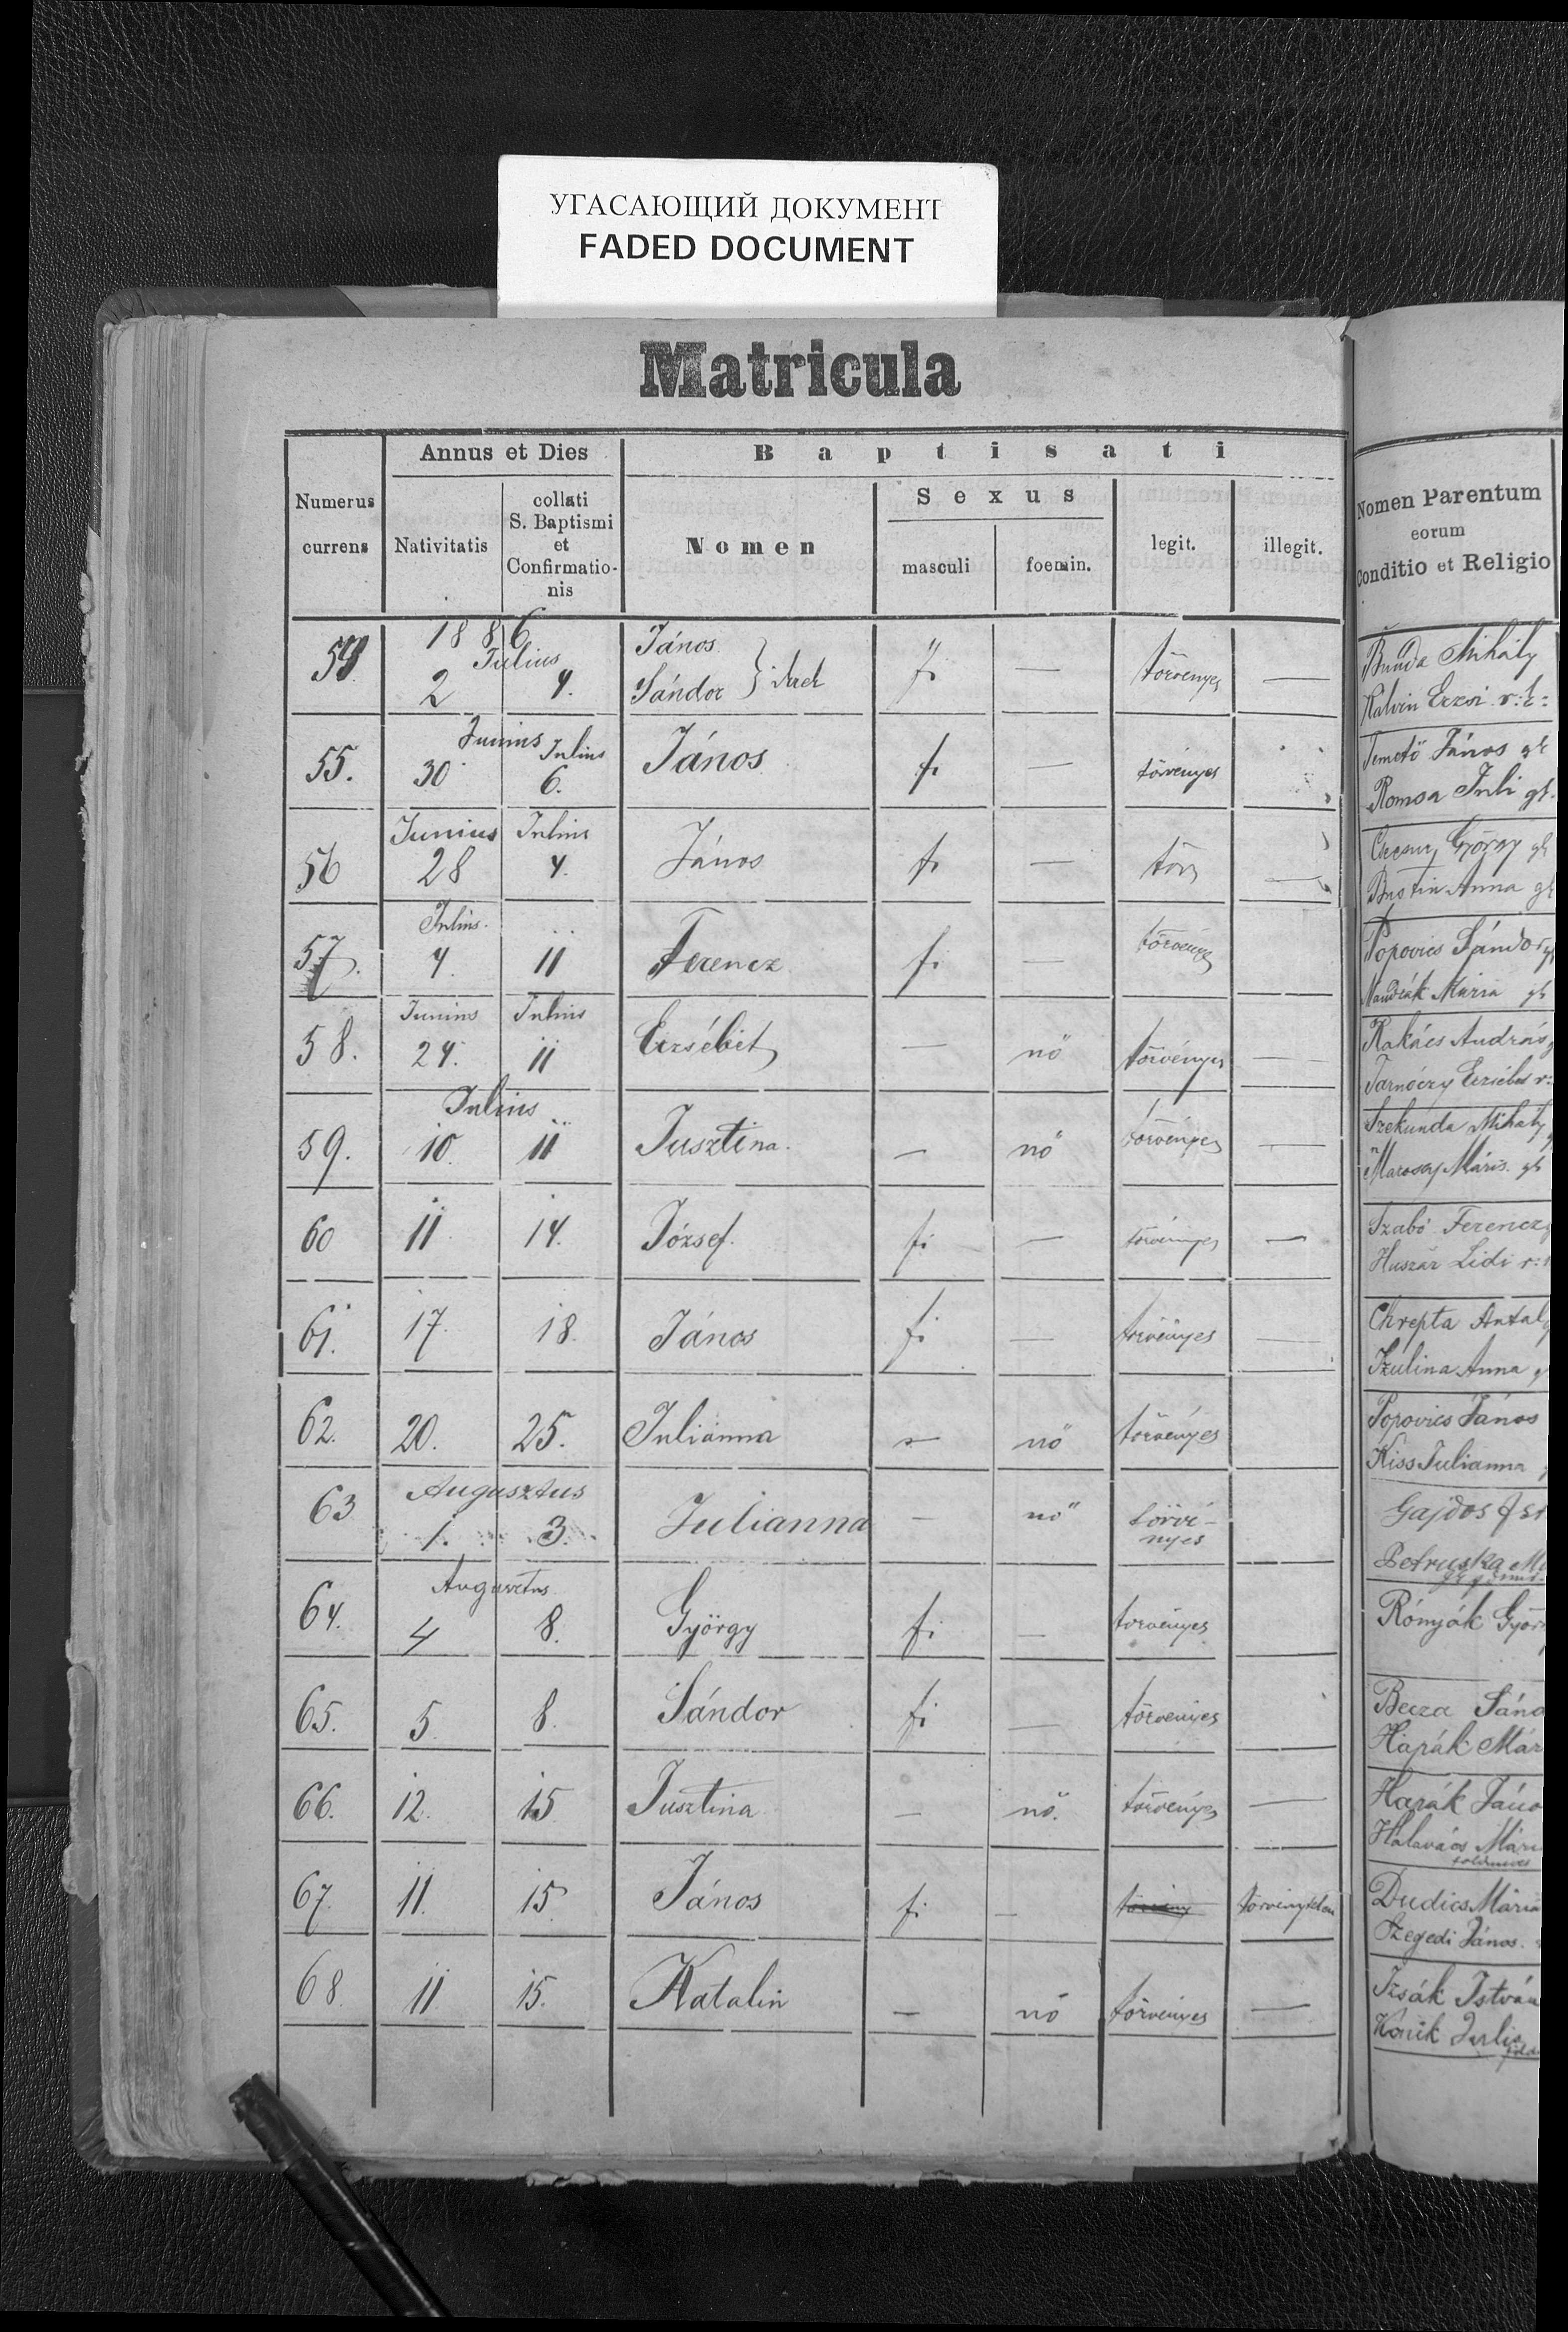 УГАСАЮЩИЙ ДОКУМЕНТ
FADED DOCUMENT
Matricula
Numerus currens
Annus et Dies
Nativitatis
collati S. Baptismi et Confirmatio- nis
Baptisati
Nomen
Sexus
masculi
foemin.
legit.
illegit.
Nomen Parentum
eorum
Conditio et Religio
1886
Julius
54 2 4. János Sándor } ikrek fi — törvényes — Bunda Mihály
Kalvin Erzsi r:k:
Junius Julius
55. 30 6. János fi — törvényes Temető János gk
Romsa Juli gk.
Junius Julius
56 28 4. János fi — törv — György gk
Anna gk
Julius
57. 4. 11 Ferencz fi — törvényes Popovics Sándor gk
Mária gk
Junius Julius
58. 24. 11 Erzsébet — nő törvényes — Kakács András
Tarnóczy Erzsébet r:
Julius
59. 10. 11 Jusztina. — nő törvényes — Szekunda Mihály
Marosaj Máris. gk
60 11 14. József. fi — törvényes — Szabó Ferencz
Huszár Lidi r:
61. 17. 18. János fi — törvényes — Chrepta Antal
Anna
62. 20. 25. Julianna — nő törvényes Popovics János
Kiss Julianna
Augusztus
63 1. 3. Julianna — nő törvé-
nyes
Gajdos
Petruska
Augusztus
64. 4 8. György fi — törvényes Rónyják
65. 5. 8. Sándor fi — törvényes Becza
Hapák
66. 12. 15 Jusztina — nő. törvényes — Harák
Halavács
földmives
67. 11. 15 János fi — törvény törvénytelen Dudics Mária
Szegedi János.
68. 11 15. Katalin — nő törvényes — Izsák István